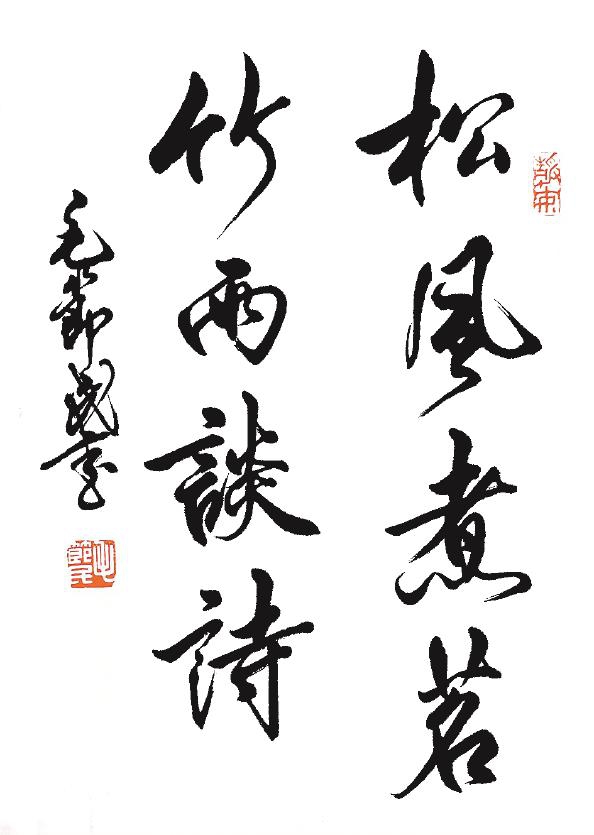 松風煮茗
竹雨談詩
毛節民書